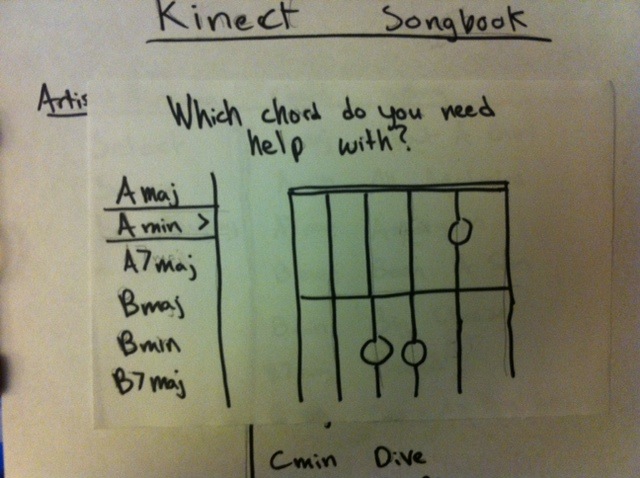 Kinect Songbook
Artis
Which chord do you need
help with?
A maj
A min >
A7maj
Bmaj
Bmin
B7maj
Cmin Dive